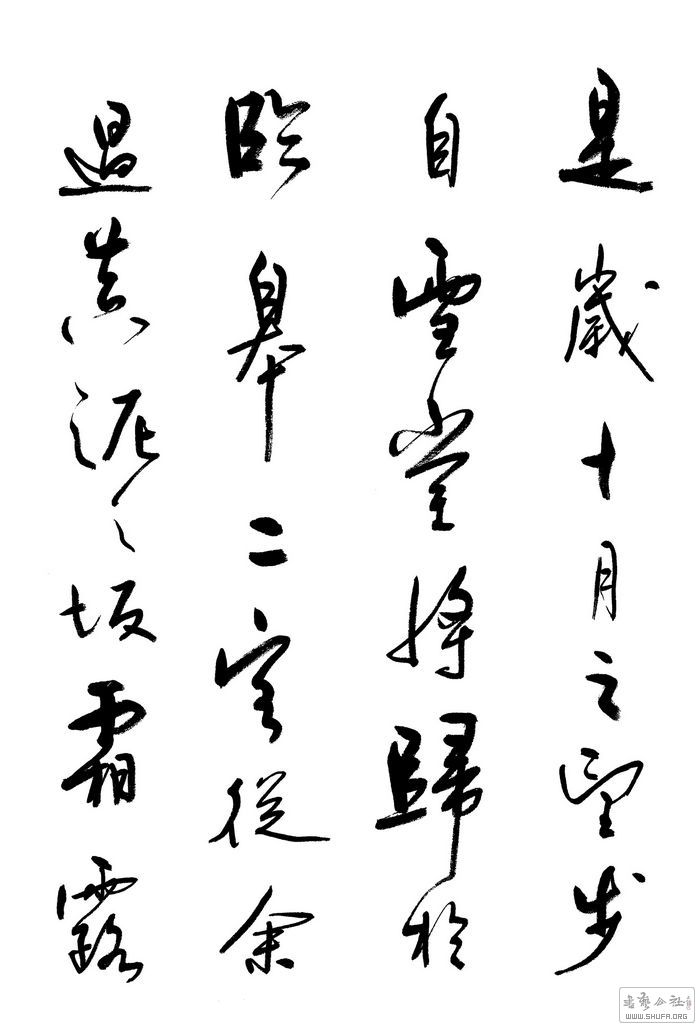 是歲十月之望步
自雪堂將歸於
臨皋二客從余
過黃泥之坂霜露
書藝公社
WWW.SHUFA.ORG